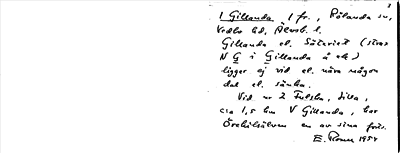 1 Gillanda 1 fr., Rölanda sn,
Vedbo hd, Älvsb. l.
Gillanda el. Säteriet (strax
N G i Gillanda å ek)
ligger ej vid el. nära någon
dal el. sänka.
Vid nr 2 Fulska, dilla,
c:a 1,5 km V Gillanda, har
Örekilsälven en av sina
E. 1954